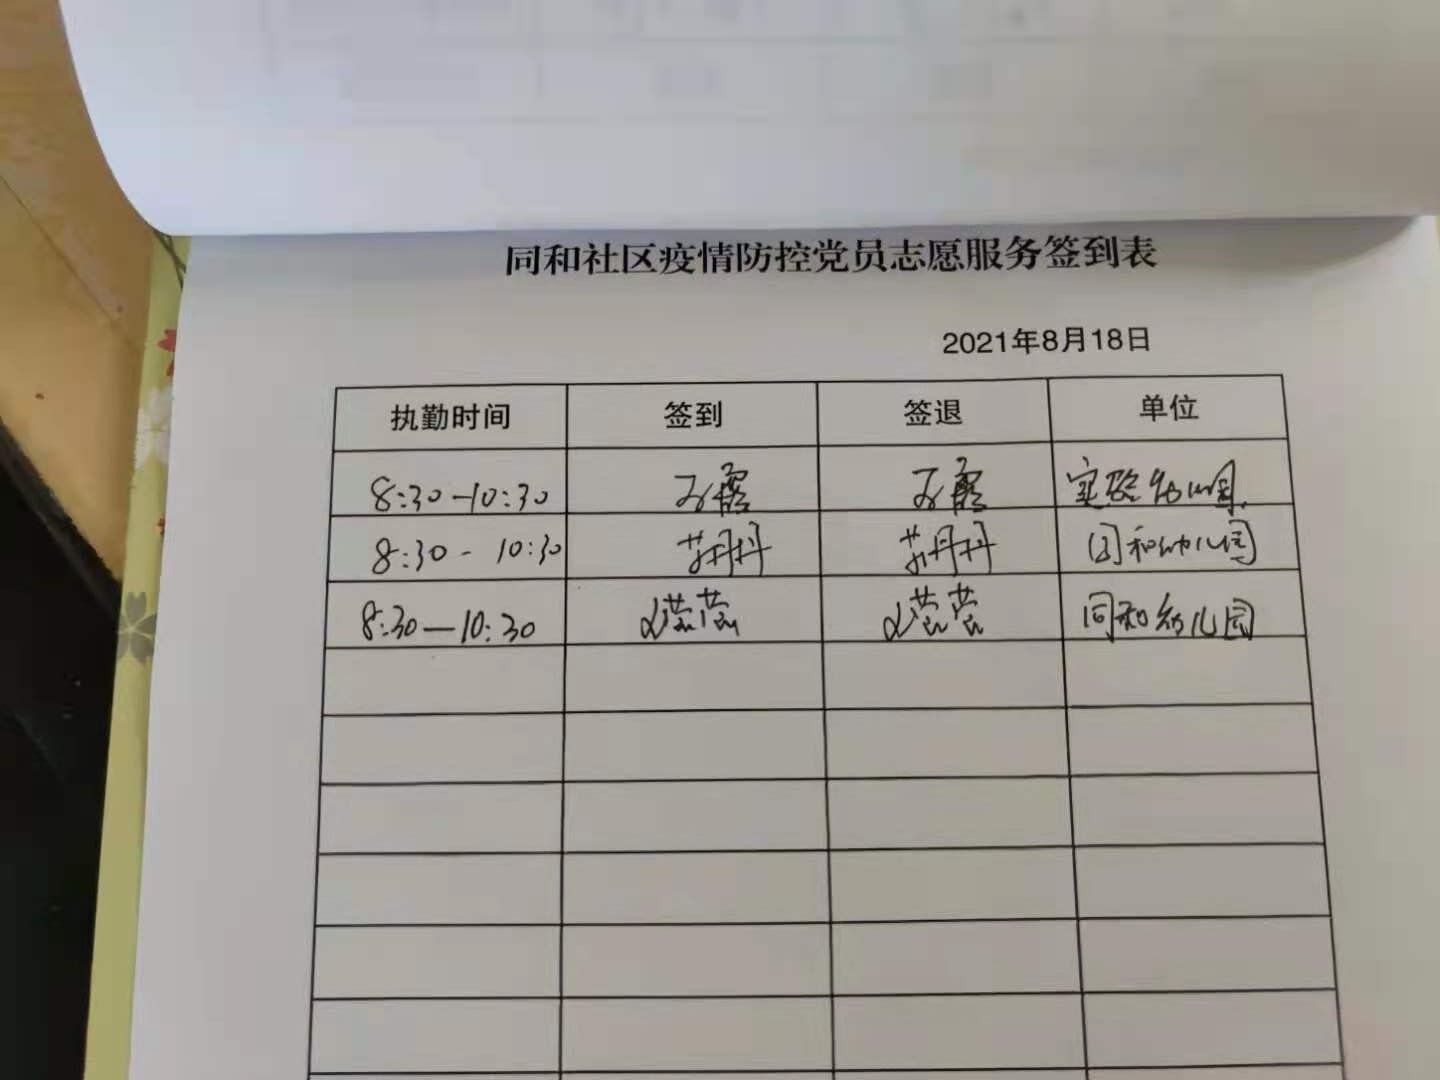 同和社区疫情防控党员志愿服务签到表
2021年8月18日
执勤时间 签到 签退 单位
8:30-10:30 实验幼儿园
8:30-10:30 同和幼儿园
8:30-10:30 同和幼儿园